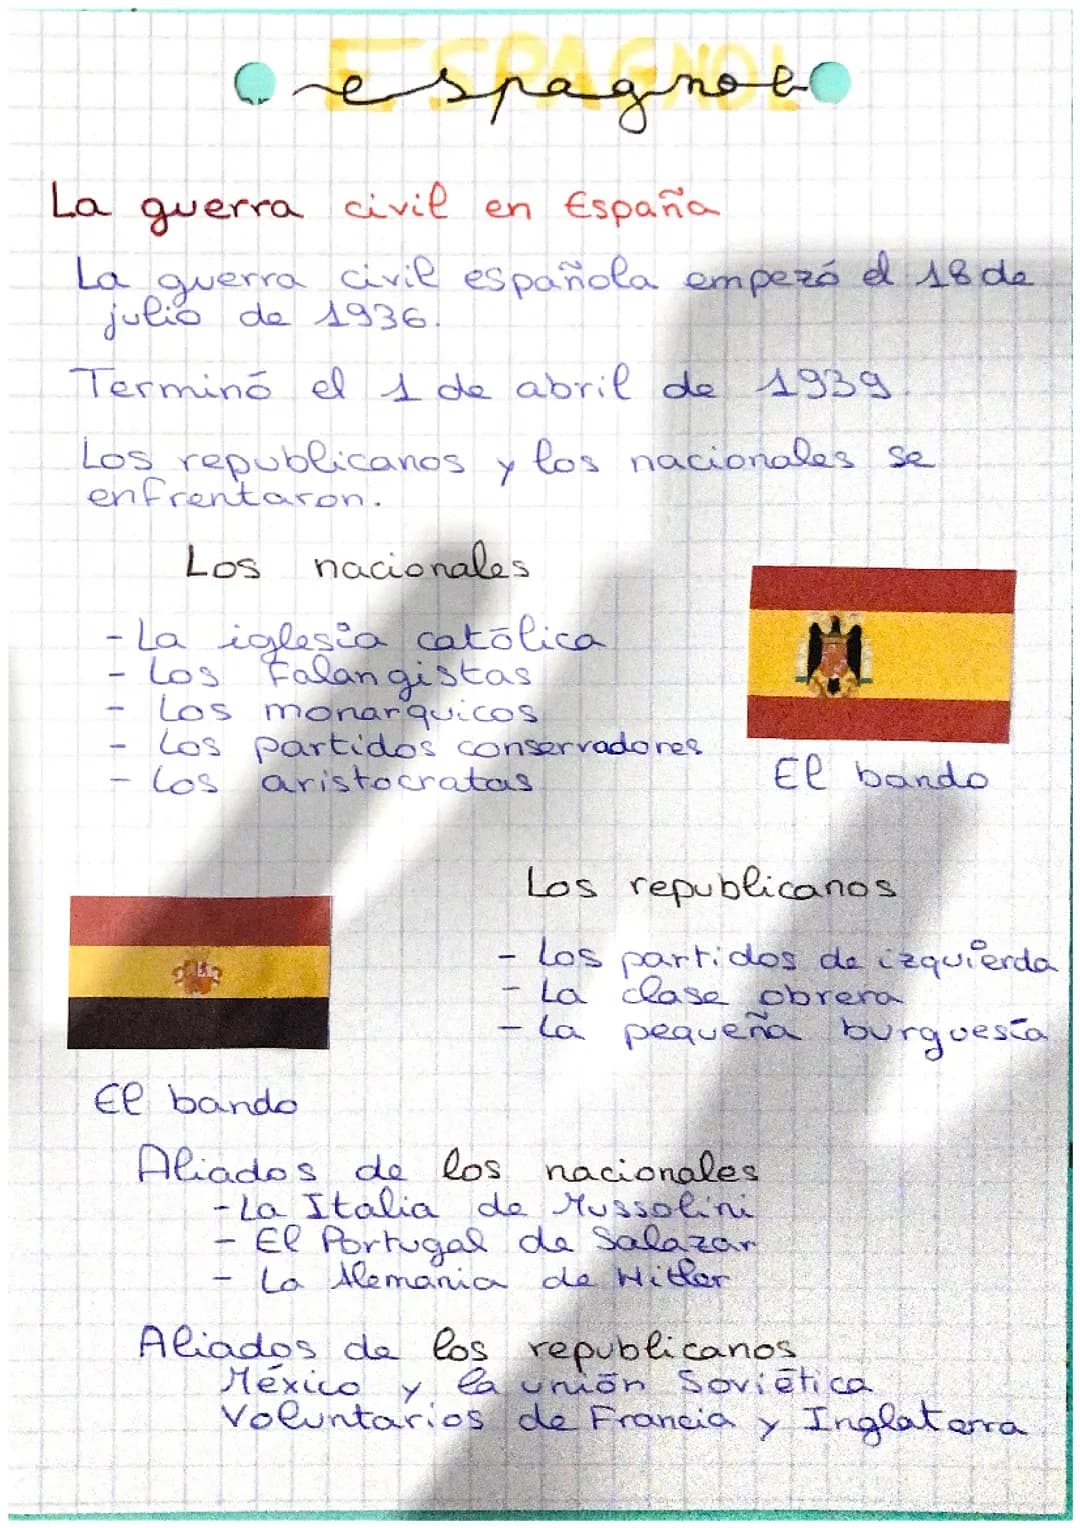 ESPAGNOL
espagnol
La guerra civil en España
La guerra civil española empezó el 18 de
julio de 1936.
Terminó el 1 de abril de 1939.
Los republicanos y los nacionales se
enfrentaron.
Los nacionales
- La iglesia católica
- Los Falangistas
- Los monarquicos
- Los partidos conservadores
- Los aristocratas
El bando
Los republicanos
- Los partidos de izquierda
- La clase obrera
- La pequeña burguesía
El bando
Aliados de los nacionales
- La Italia de Mussolini
- El Portugal de Salazar
- La Alemania de Hitler
Aliados de los republicanos
México y la unión Soviética
Voluntarios de Francia y Inglaterra